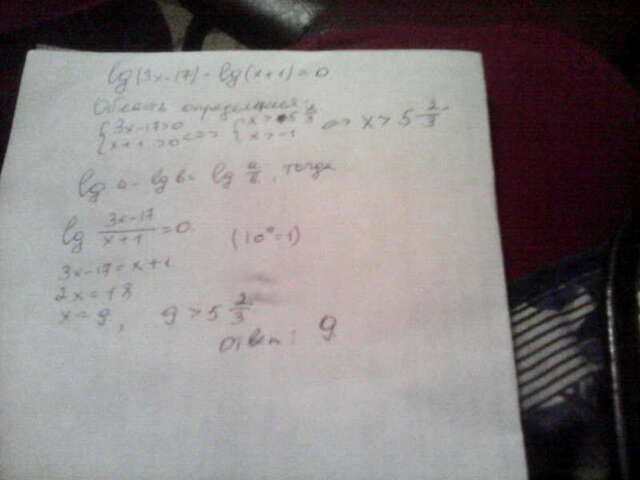 lg(3x-17)-lg(x+1)=0
Область определения:
{3x-17>0 x+1>0 <=> {x>5 2/3 x>-1 => x>5 2/3
lg a - lg b = lg a/b, тогда
lg 3x-17/x+1 = 0 (10⁰=1)
3x-17=x+1
2x=18
x=9, 9>5 2/3
Ответ: 9